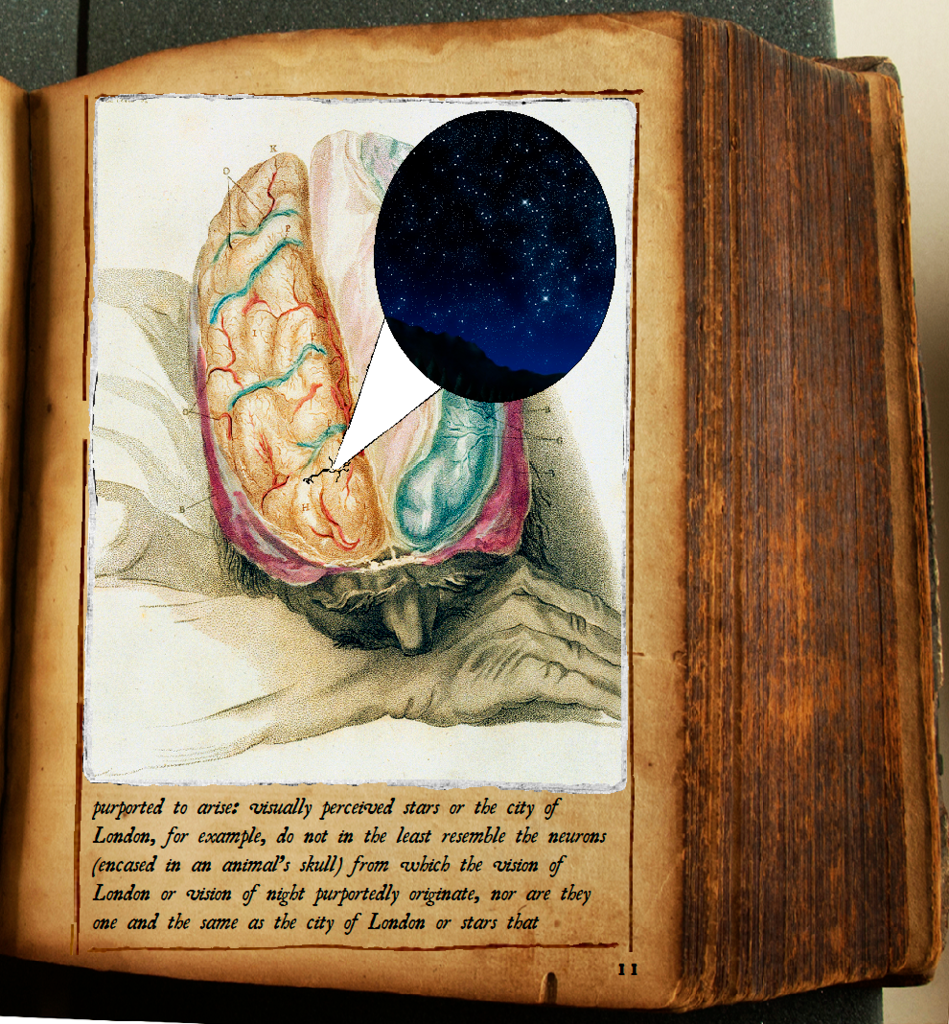 K
O
P
I
P
O
B
G
B
H
purported to arise: visually perceived stars or the city of
London, for example, do not in the least resemble the neurons
(encased in an animal's skull) from which the vision of
London or vision of night purportedly originate, nor are they
one and the same as the city of London or stars that
11